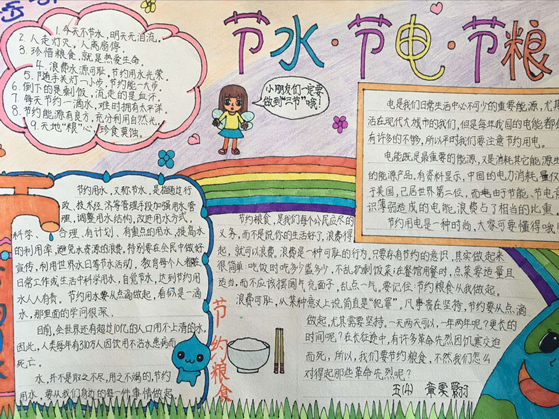 节水·节电·节粮
1.今天不节水,明天无泪流。
2.人走灯灭,人离扇停。
3.珍惜粮食,就是热爱生命。
4.浪费水源可耻,节约用水光荣。
5.随手关灯一小步,节约能一大步。
6.倒下的是剩饭,流走的是血汗。
7.每天节约一滴水,难时拥有太平洋。
8.节约能源有良方,充分利用自然光。
9.天地“粮”心,珍食莫蚀。
小朋友们一定要
做到“三节”哦!
电是我们日常生活中必不可少的重要能源,尤其
活在现代大城市的我们,但是每年我国的电能都
有许多的不够,所以平时我们要注意节约用电。
电能既是最重要的能源,又是消耗其它能源
的能源产品,有资料显示,中国的电力消耗,量仅
于美国,己居世界第二位,而电由于节能、节电
识薄弱造成的电能浪费占了相当的比重。
节约用电是一种时尚,大家可要懂得哦!
节约用水,又称节水,是指通过行
政、技术、经济等管理手段加强用水管
理,调整用水结构,改进用水方式,
科学、合理、有计划、有重点的用水,提高水
的利用率,避免水资源的浪费。特别要在全民中做好
宣传,利用世界水日等节水活动,教育每个人在
日常工作或生活中科学用水,自觉节水,达到节约用
水人人有责。节约用水要从点滴做起,有
水,那里面的学问很深。
目前,全世界还有超过10亿的人口用不上清洁的水,
因此,人类每年有310万人因饮用不洁水患病而
死亡。
水,并不是取之不尽,用之不竭的,节约
用水,要从我们身边的每一件事情做起
节约粮食
节约粮食,是我们每个公民应尽的
义务,而不是说你的生活好了,浪费得
起,就可以浪费。浪费是一种可耻的行为,只要存有节约的意识,其实做起来
很简单:吃饭时吃多少盛多少,不乱扔剩饭菜;在餐馆用餐时,点菜要适量且
适当,而不应该摆阔气充面子,乱点一气。要记住:节约粮食从我做起。
浪费可耻,从某种意义上说简直是“犯罪”,凡事贵在坚持,节约要从点滴
做起,尤其需要坚持,一天两天可以,一年两年呢?更长的
时间呢?在长征途中,有许多革命先烈因饥寒交迫
而死,所以,我们要节约粮食,不然我们怎么
对得起那些革命先烈呢?